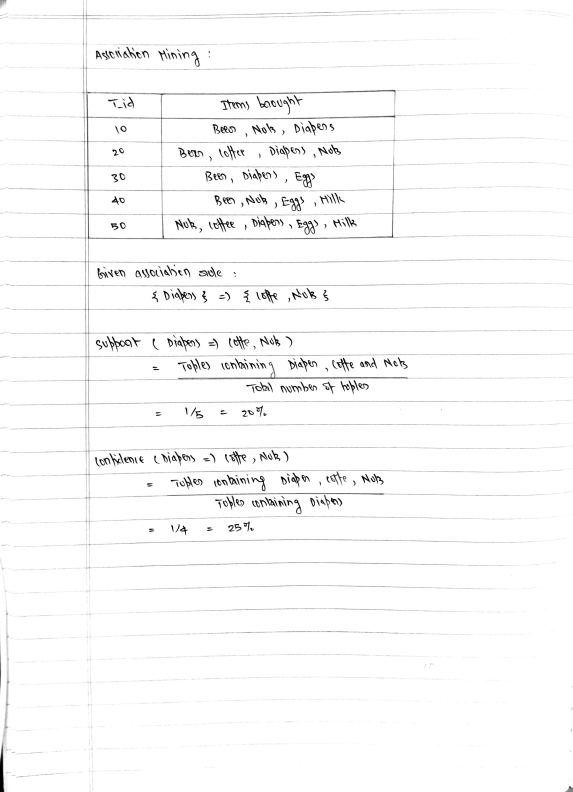 Association Mining :
T_id Items brought
10 Beer , Nuts , Diapers
20 Beer , Coffee , Diapers , Nuts
30 Beer , Diapers , Eggs
40 Beer , Nuts , Eggs , Milk
50 Nuts , Coffee , Diapers , Eggs , Milk
Given association rule :
{ Diapers } => { Coffe , Nuts }
Support ( Diapers => Coffe , Nuts )
= Tuples containing Diaper , Coffe and Nuts
Total number of tuples
= 1/5 = 20%
Confidence ( Diapers => Coffe , Nuts )
= Tuples containing Diaper , Coffe , Nuts
Tuples containing Diapers
= 1/4 = 25%